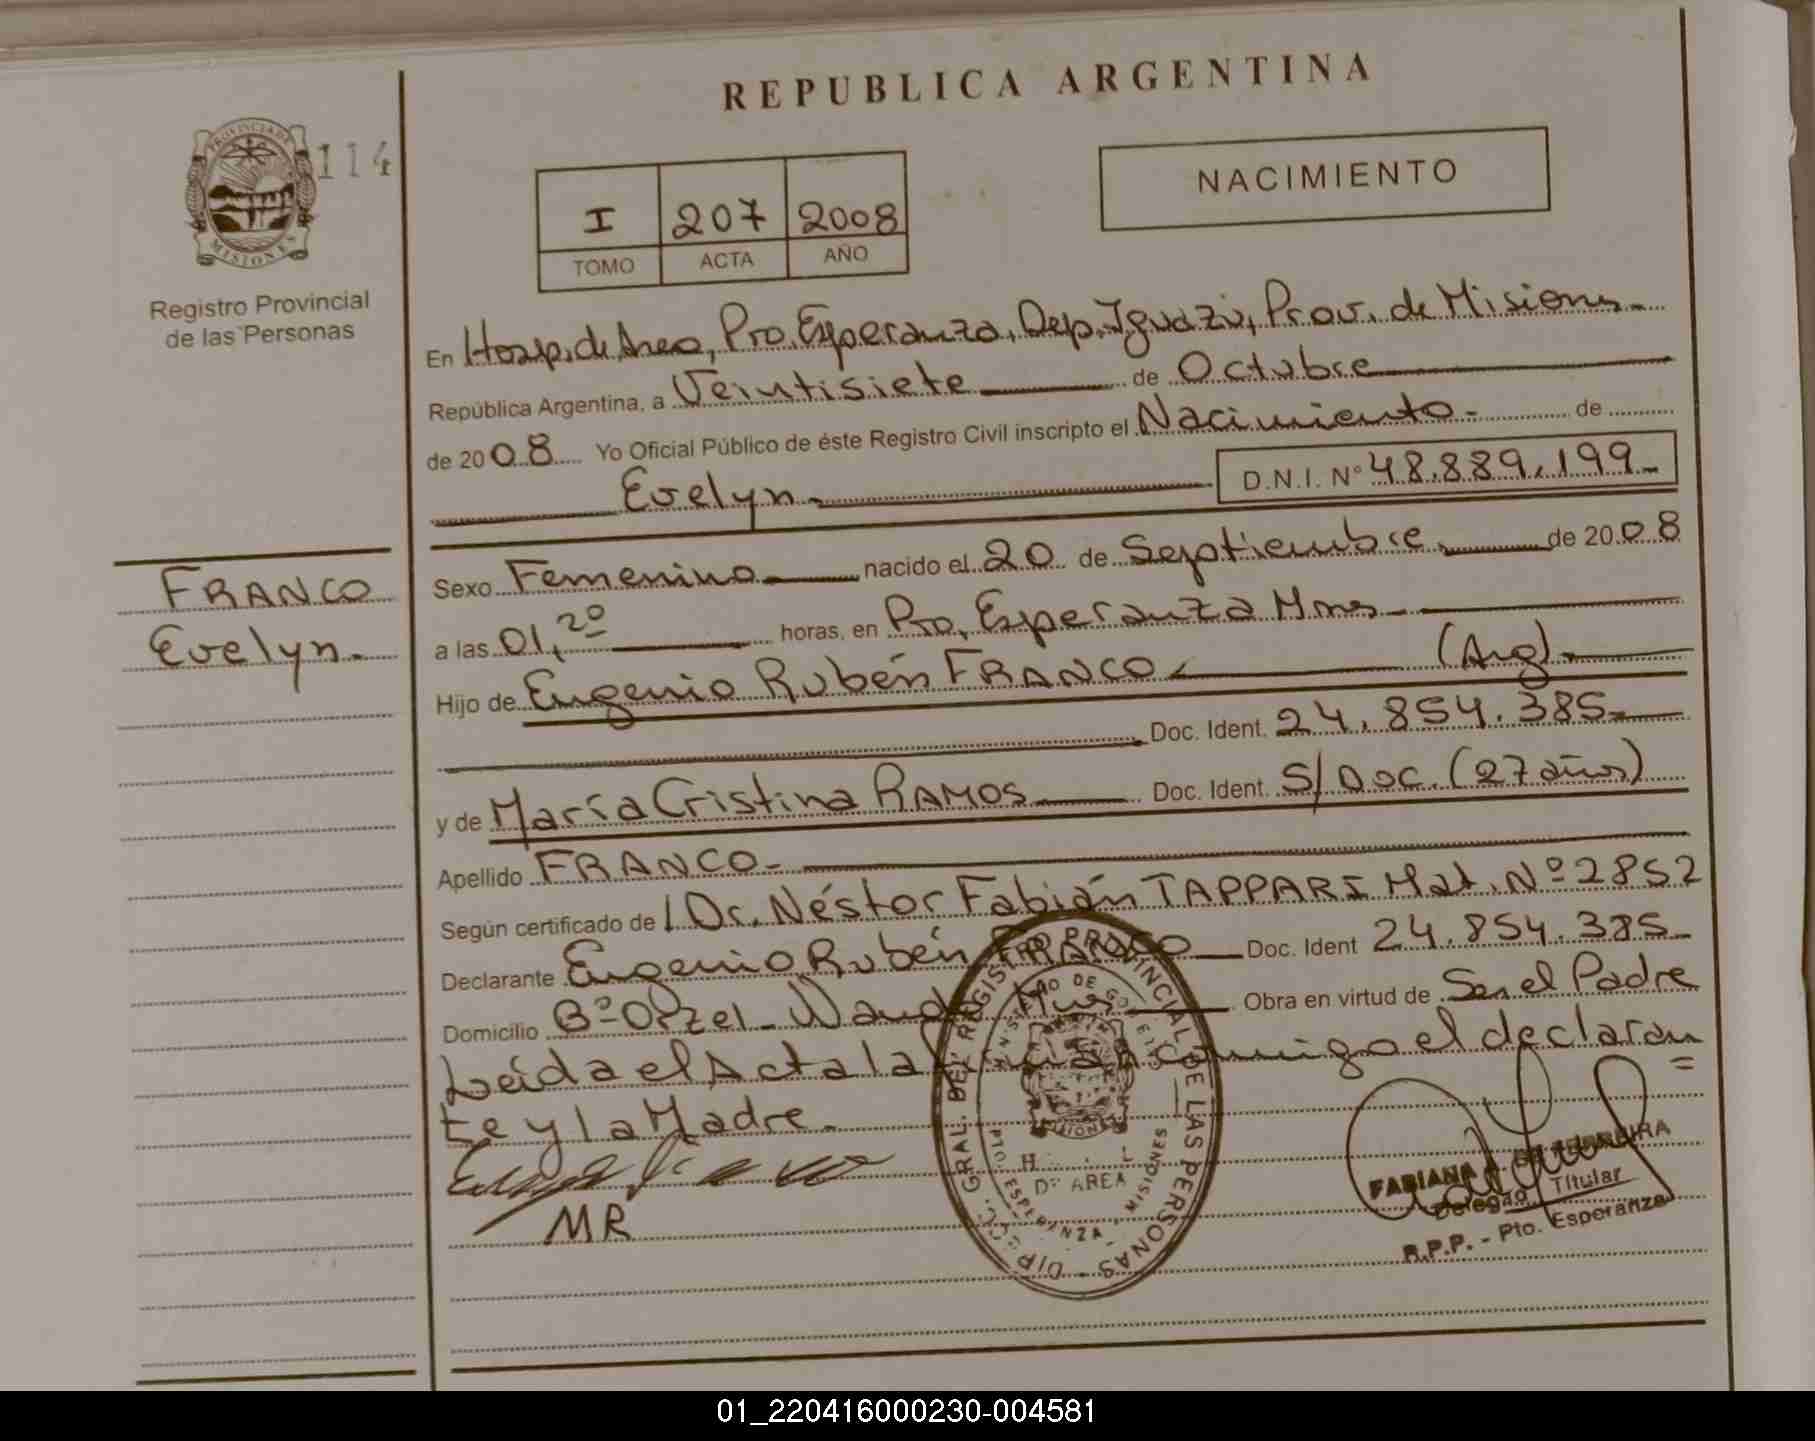 REPUBLICA ARGENTINA
PROVINCIA DE
MISIONES
114
Registro Provincial
de las Personas
I 207 2008
TOMO ACTA AÑO
NACIMIENTO
En Hosp. de Area, Pto. Esperanza, Dep. Iguazú, Prov. de Misiones.
República Argentina, a Veintisiete de Octubre
de 2008 Yo Oficial Público de éste Registro Civil inscripto el Nacimiento - de
Evelyn. D.N.I. Nº 48.889.199
FRANCO
Evelyn.
Sexo Femenino nacido el 20 de Septiembre de 2008
a las 01,20 horas, en Pto. Esperanza Mnes
Hijo de Eugenio Rubén FRANCO (Arg).
Doc. Ident. 24.854.385
y de María Cristina RAMOS Doc. Ident. S/Doc. (27 años)
Apellido FRANCO
Según certificado del Dr. Néstor Fabián TAPPARI Mat. Nº 2852
Declarante Eugenio Rubén FRANCO Doc. Ident 24.854.385
Domicilio Bº Wanda Obra en virtud de Ser el Padre
Leída el Acta la conmigo el declaran
te y la Madre.
MR
DIR. GRAL. DEL REGISTRO PROVINCIAL DE LAS PERSONAS
MINISTERIO DE GOBIERNO
Dº AREA
PTO. ESPERANZA - MISIONES
FABIANA FERREIRA
Delegado Titular
R.P.P. - Pto. Esperanza
01_220416000230-004581